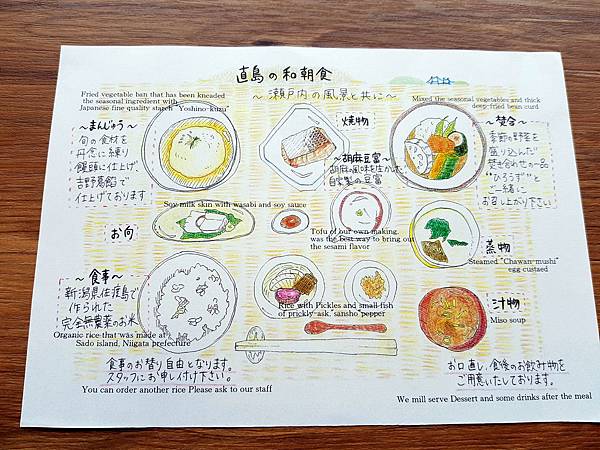 直島の和朝食
～瀬戸内の風景と共に～
Fried vegetable ban that has been kneaded
the seasonal ingredient with
Japanese fine quality starch "Yoshino-kuzu"
～まんじゅう～
旬の食材を
丹念に練り
饅頭に仕上げ、
吉野葛餡で
仕上げております
焼物
Mixed the seasonal vegetables and thick
deep-fried bean curd
～焚合～
季節の野菜を
盛り込んだ
焚き合わせの一品
"ひろうず"と
ご一緒に
お召し上がり下さい
～胡麻豆富～
胡麻の風味を生かした
自家製の豆富
Soy milk skin with wasabi and soy sauce
お向
Tofu of our own making.
was the best way to bring out
the sesami flavor
蒸物
Steamed "Chawan-mushi"
egg custaed
～食事～
新潟県佐渡島で
作られた
完全無農薬のお米
Organic rice that was made at
Sado island, Niigata prefechire
Rice with Pickles and small fish
of prickly-ask "sansho" pepper
汁物
Miso soup
食事のお替り自由となります。
スタッフにお申し付け下さい。
You can order another rice Please ask to our staff
お口直し、食後のお飲み物を
ご用意いたしております。
We mill serve Dessert and some drinks after the meal